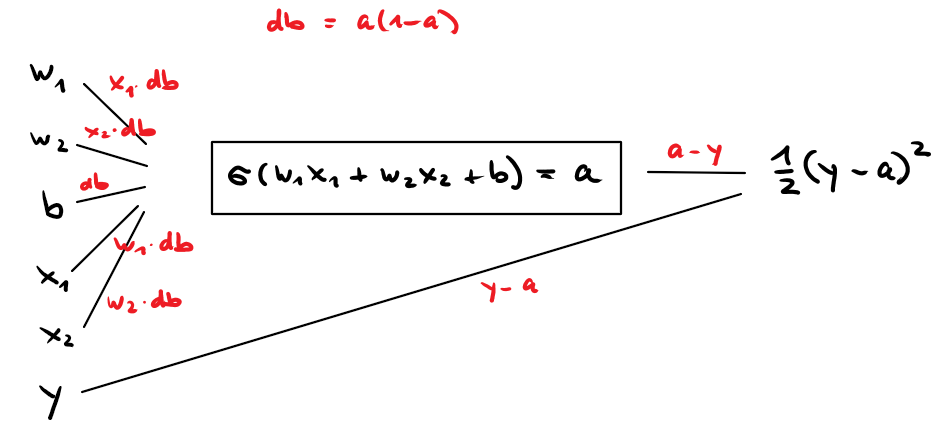 db = a(1-a)
w₁
x₁· db
w₂
x₂· db
b
db
x₁
w₁· db
x₂
w₂· db
y
σ(w₁x₁ + w₂x₂ + b) = a
a - y
½(y - a)²
y - a